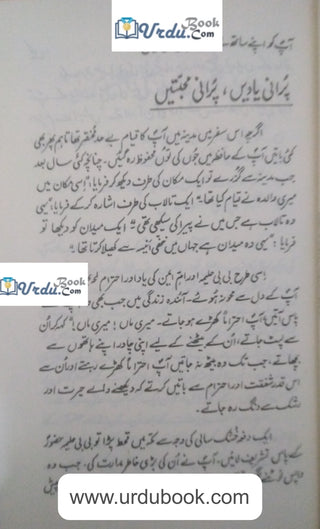 Urdu Book .Com
آپؐ کو اپنے ساتھ
پُرانی یادیں ، پُرانی محبّتیں
اگرچہ اس سفر میں مدینہ میں آپؐ کا قیام بے حد مختصر تھا تاہم پھر بھی
کئی باتیں آپؐ کے حافظہ میں جُوں کی تُوں محفوظ رہ گئیں۔ چنانچہ کئی سال بعد
جب مدینہ سے گزرے تو ایک مکان کی طرف دیکھ کر فرمایا، "اِسی مکان میں
میری والدہ نے قیام کیا تھا۔" ایک تالاب کی طرف اشارہ کر کے فرمایا، "یہی
وہ تالاب ہے جس میں نے پیرا کی سیکھی تھی۔" ایک میدان کو دیکھا تو
فرمایا: "یہی وہ میدان ہے جہاں میں ننھی اُنیسہ سے کھیلا کرتا تھا۔"
اِسی طرح بی بی حلیمہ اور اُمّ ایمن کی یاد اور احترام
Urdu Book .Com
آپؐ کے دل سے محو نہ ہوئے۔ آئندہ زندگی میں جب بھی
پاس آتیں آپؐ احتراماً کھڑے ہو جاتے۔ میری ماں! میری ماں! کہہ کر اُن
سے لپٹ جاتے، اُن کے بیٹھنے کے لیے اپنی چادر اپنے ہاتھوں سے
بچھاتے، جب تک وہ بیٹھ نہ جاتیں آپؐ احتراماً کھڑے رہتے اور اُن سے
اس قدر شفقت اور احترام سے باتیں کرتے کہ دیکھنے والے حیرت اور
رشک سے دنگ رہ جاتے۔
ایک دفعہ خشک سالی کی وجہ سے مکّہ میں قحط پڑا تو بی بی حلیمہ حضورؐ
کے پاس تشریف لائیں۔ آپؐ نے اُن کی بڑی خاطر مدارت کی۔ جب وہ
واپس
www.urdubook.com